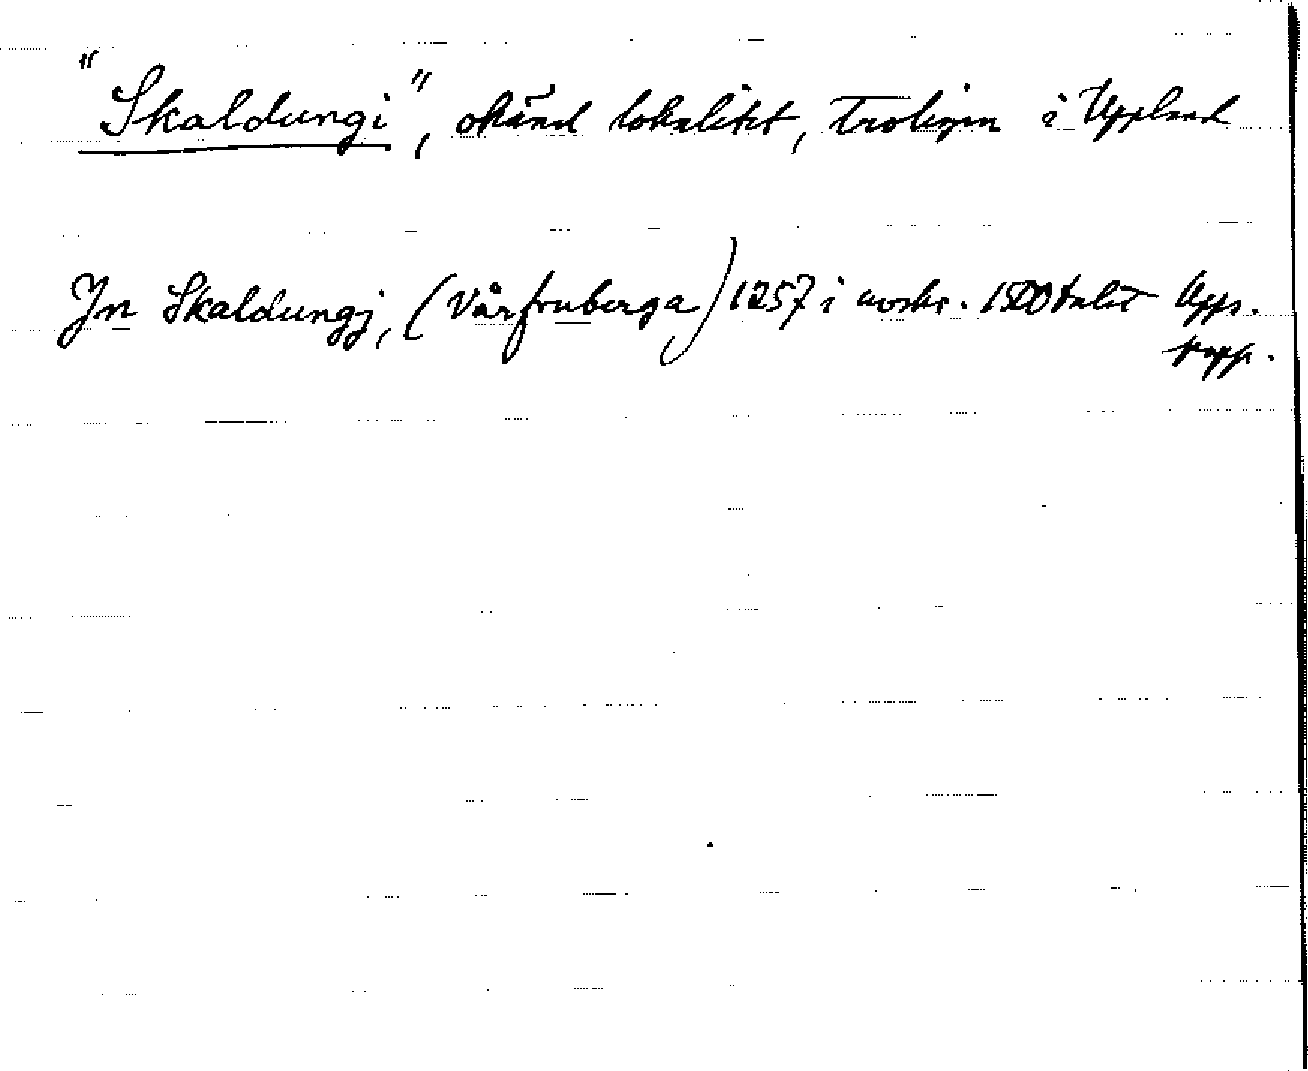 "Skaldungi", okänd lokalitet, troligen i Uppland
Jn Skaldungj, (Vårfruberga) 1257 i avskr. 1500talet Upps.